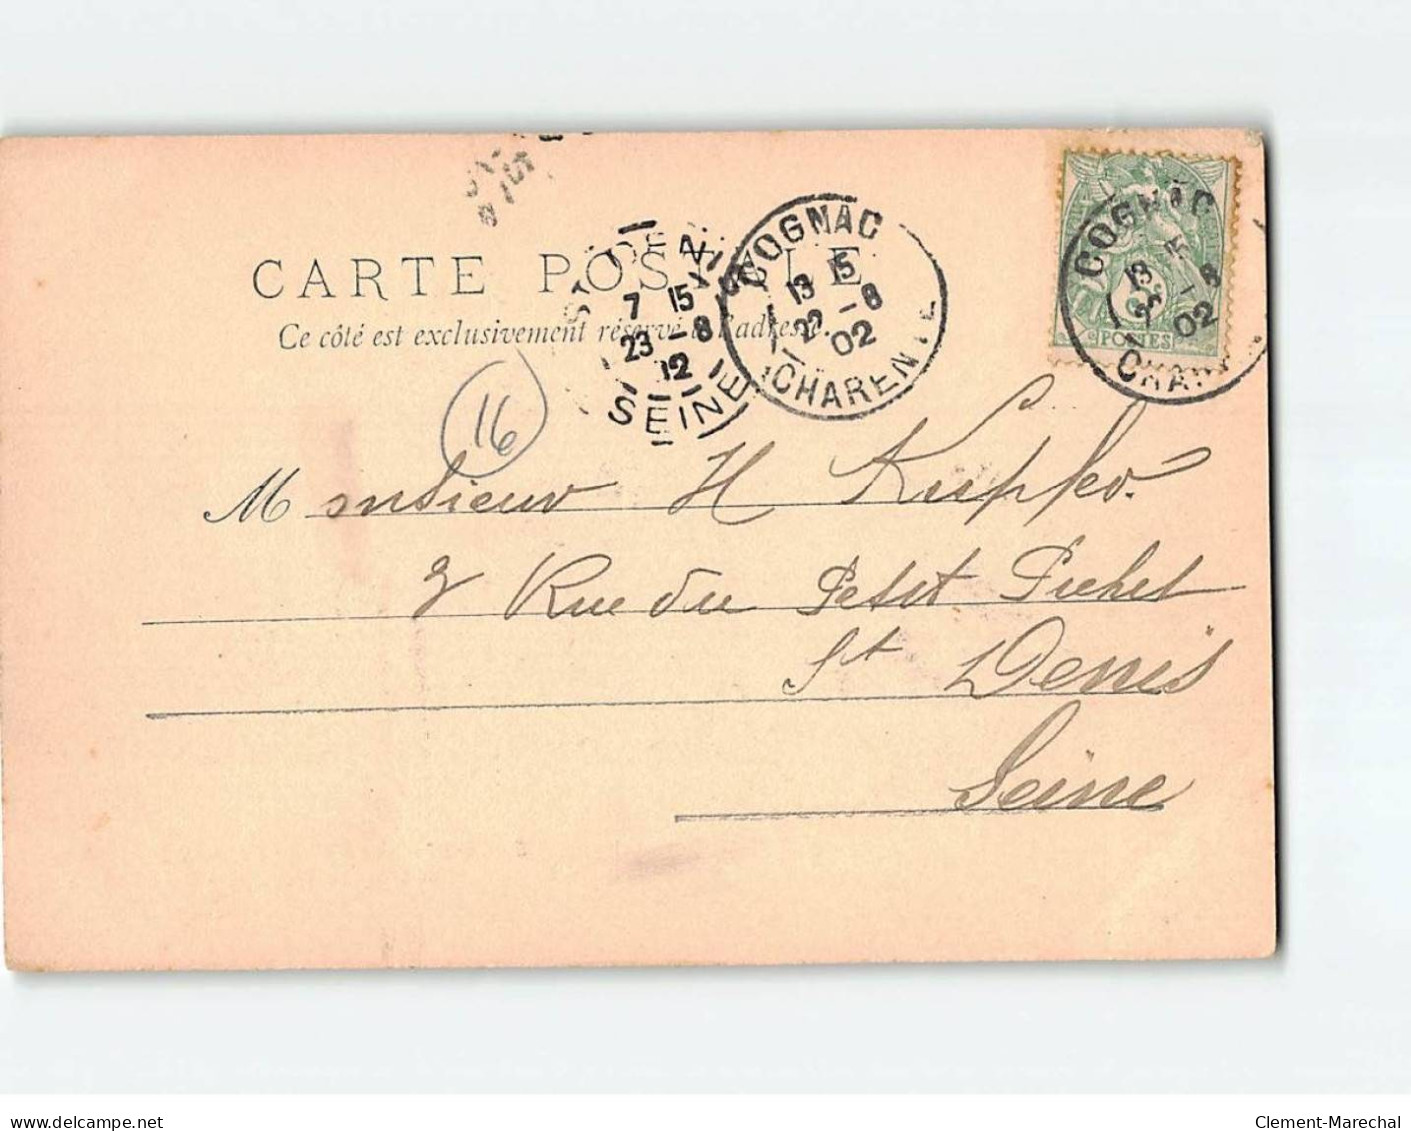 CARTE POSTALE
Ce côté est exclusivement réservé à l'adresse.
ST DENIS
7 15
23 -8
02
SEINE
COGNAC
13 15
22 -8
02
CHARENTE
COGNAC
13 15
22 -8
02
CHARENTE
5c
POSTES
16
Monsieur H Kupfer
2 Rue du Petit Pichet
St Denis
Seine
delcampe.net
Clement-Marechal